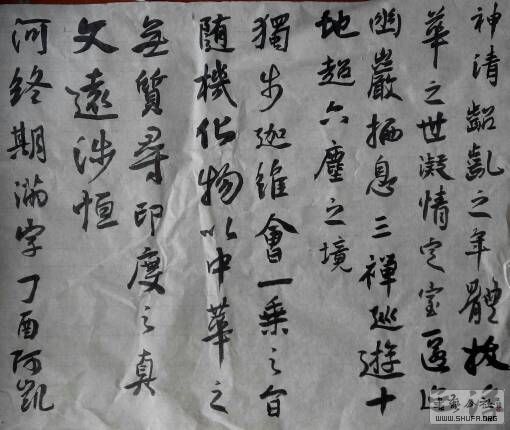 神清齠齔之年體拔
華之世凝情定室匿迹
幽巖栖息三禪巡遊十
地超六塵之境
獨步迦維會一乘之旨
随機化物以中華之
無質尋印度之真
文遠涉恒
河終期滿字丁酉阿凱
書藝公社
WWW.SHUFA.ORG